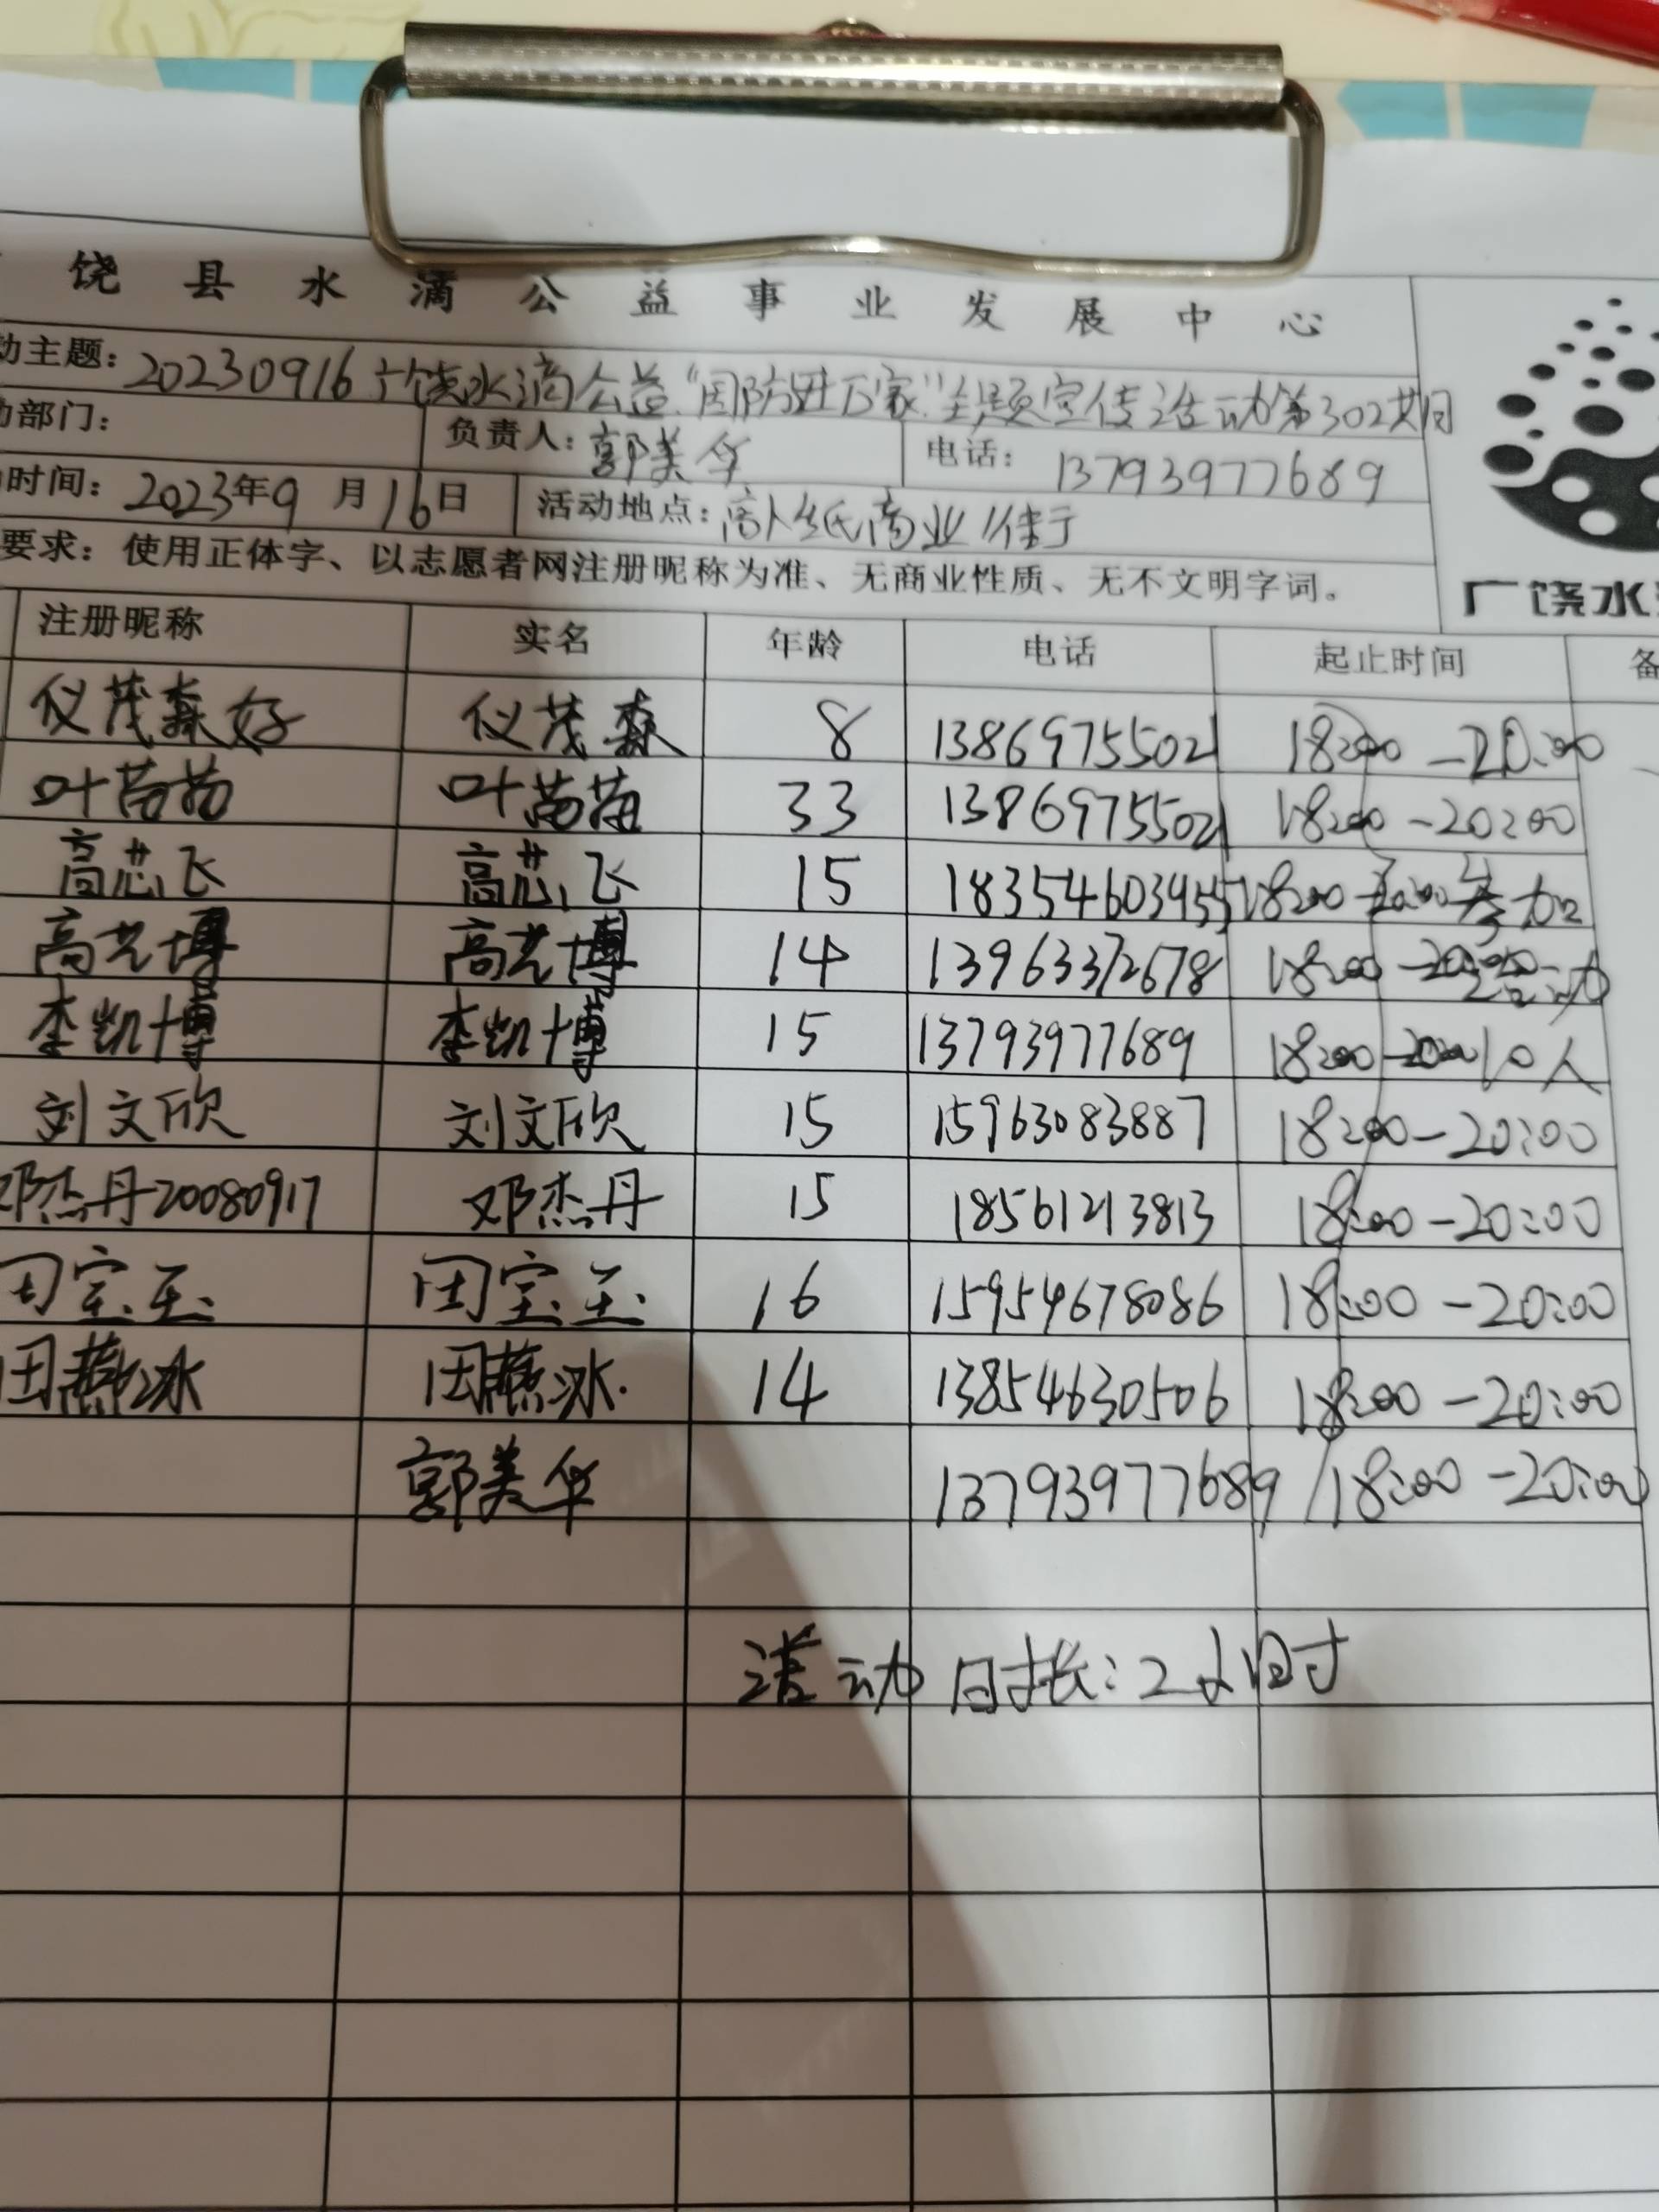 饶县水滴公益事业发展中心
动主题：20230916广饶水滴公益“国防进万家”主题宣传活动第302期
动部门： 负责人：郭美华 电话：13793977689
时间：2023年9月16日 活动地点：商业街
要求：使用正体字、以志愿者网注册昵称为准、无商业性质、无不文明字词。
广饶水
注册昵称 实名 年龄 电话 起止时间 备
仪茂森好 仪茂森 8 13869755021 18:00-20:00
叶苗苗 叶苗苗 33 13869755021 18:00-20:00
高芯飞 高芯飞 15 18354603955 18:00-20:00 参加
高艺博 高艺博 14 13963372678 18:00-20:00 活动
李凯博 李凯博 15 13793977689 18:00-20:00 10人
刘文欣 刘文欣 15 15963083887 18:00-20:00
邓杰丹20080917 邓杰丹 15 18561213813 18:00-20:00
田宝玉 田宝玉 16 15954678086 18:00-20:00
田燕冰 田燕冰 14 13854630506 18:00-20:00
郭美华 13793977689 18:00-20:00
活动时长：2小时